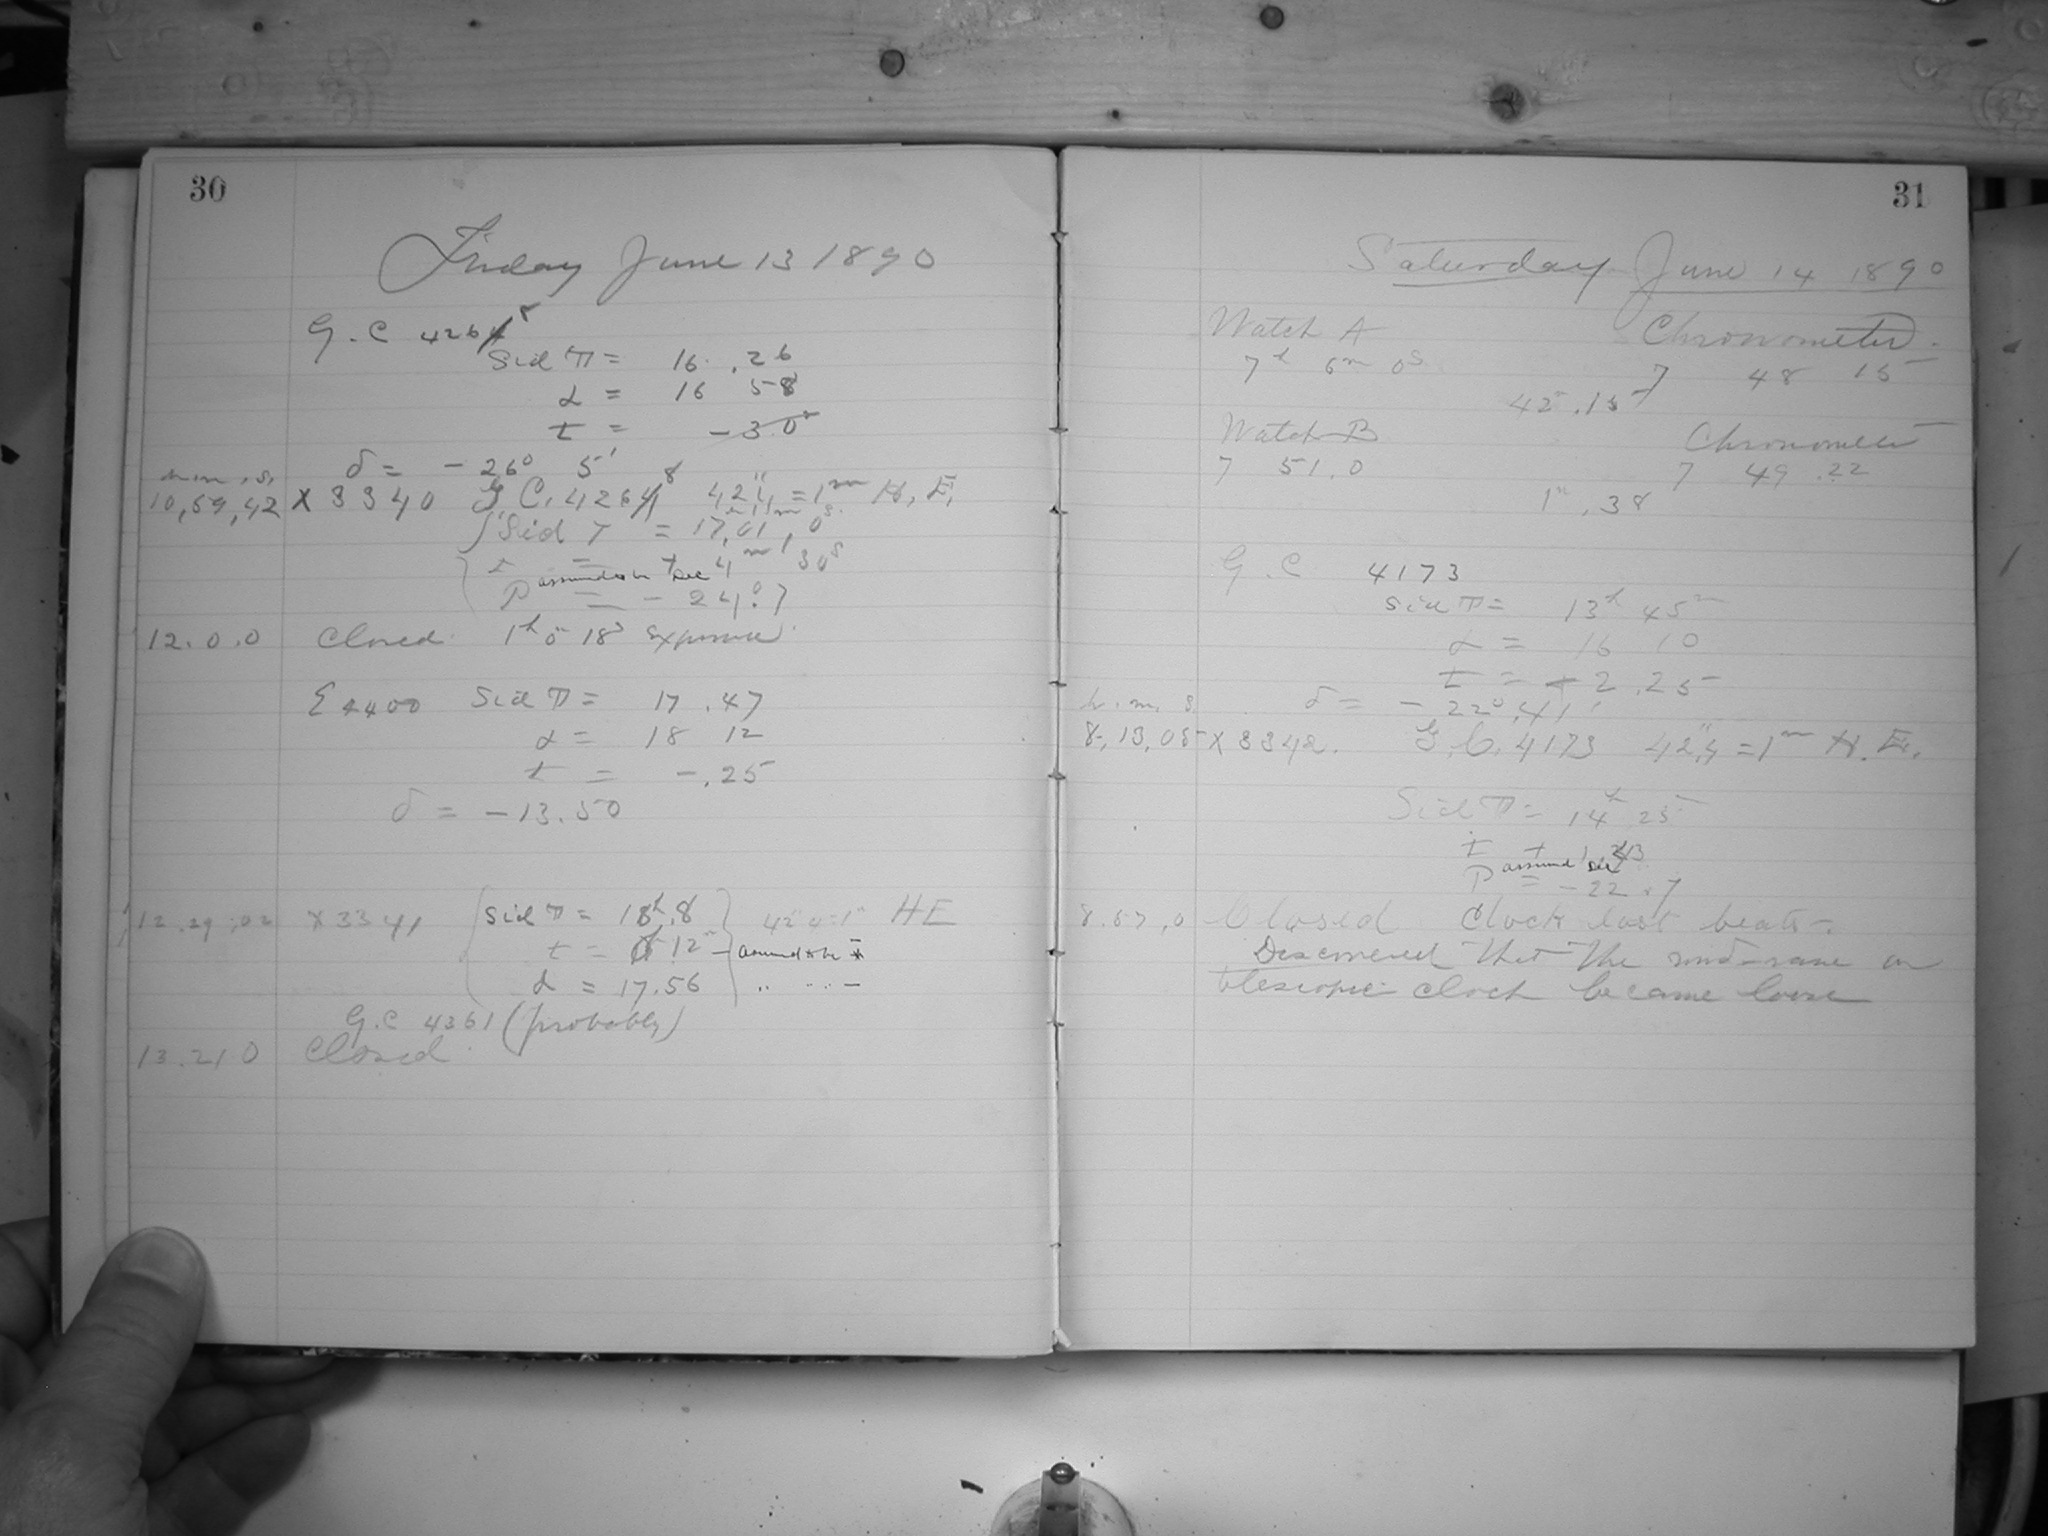 30
Friday June 13 1890
G.C 4264 8
Sid T = 16 . 26
α = 16 58
t = - 30
δ = - 26° 5'
h. m. s.
10,59,42 X 3340 G.C. 4264 8 42",4 = 1m H.E.
Sid T = 17h,01m,0s
t = + 4m 30s
assumed to be Dec
P = - 24°.7
12.0.0 Closed 1h 0m 18s exposure
Σ 4400 Sid T = 17 . 47
α = 18 12
t = - .25
δ = - 13.50
12.29.02 X 3341 Sid T = 18h.8 42".4 = 1m HE
t = 12m assumed to be +
α = 17.56 " " -
G.C 4361 (probably)
13.21 0 Closed
31
Saturday June 14 1890
Watch A Chronometer
7h 6m 0s 7 48 15
42m.15
Watch B Chronometer
7 51.0 7 49 .22
1m.38
G.C 4173
Sid T = 13h 45m
α = 16 10
t = - 2.25
δ = - 22°,41'
h. m. s
8,13,05 X 3342. G.C. 4173 42",4 = 1m H.E.
Sid T = 14h 25m
t + 1 213
assumed Dec
P = - 22.7
8.57,0 Closed Clock lost beats -
Discovered that the on
telescopic clock became loose